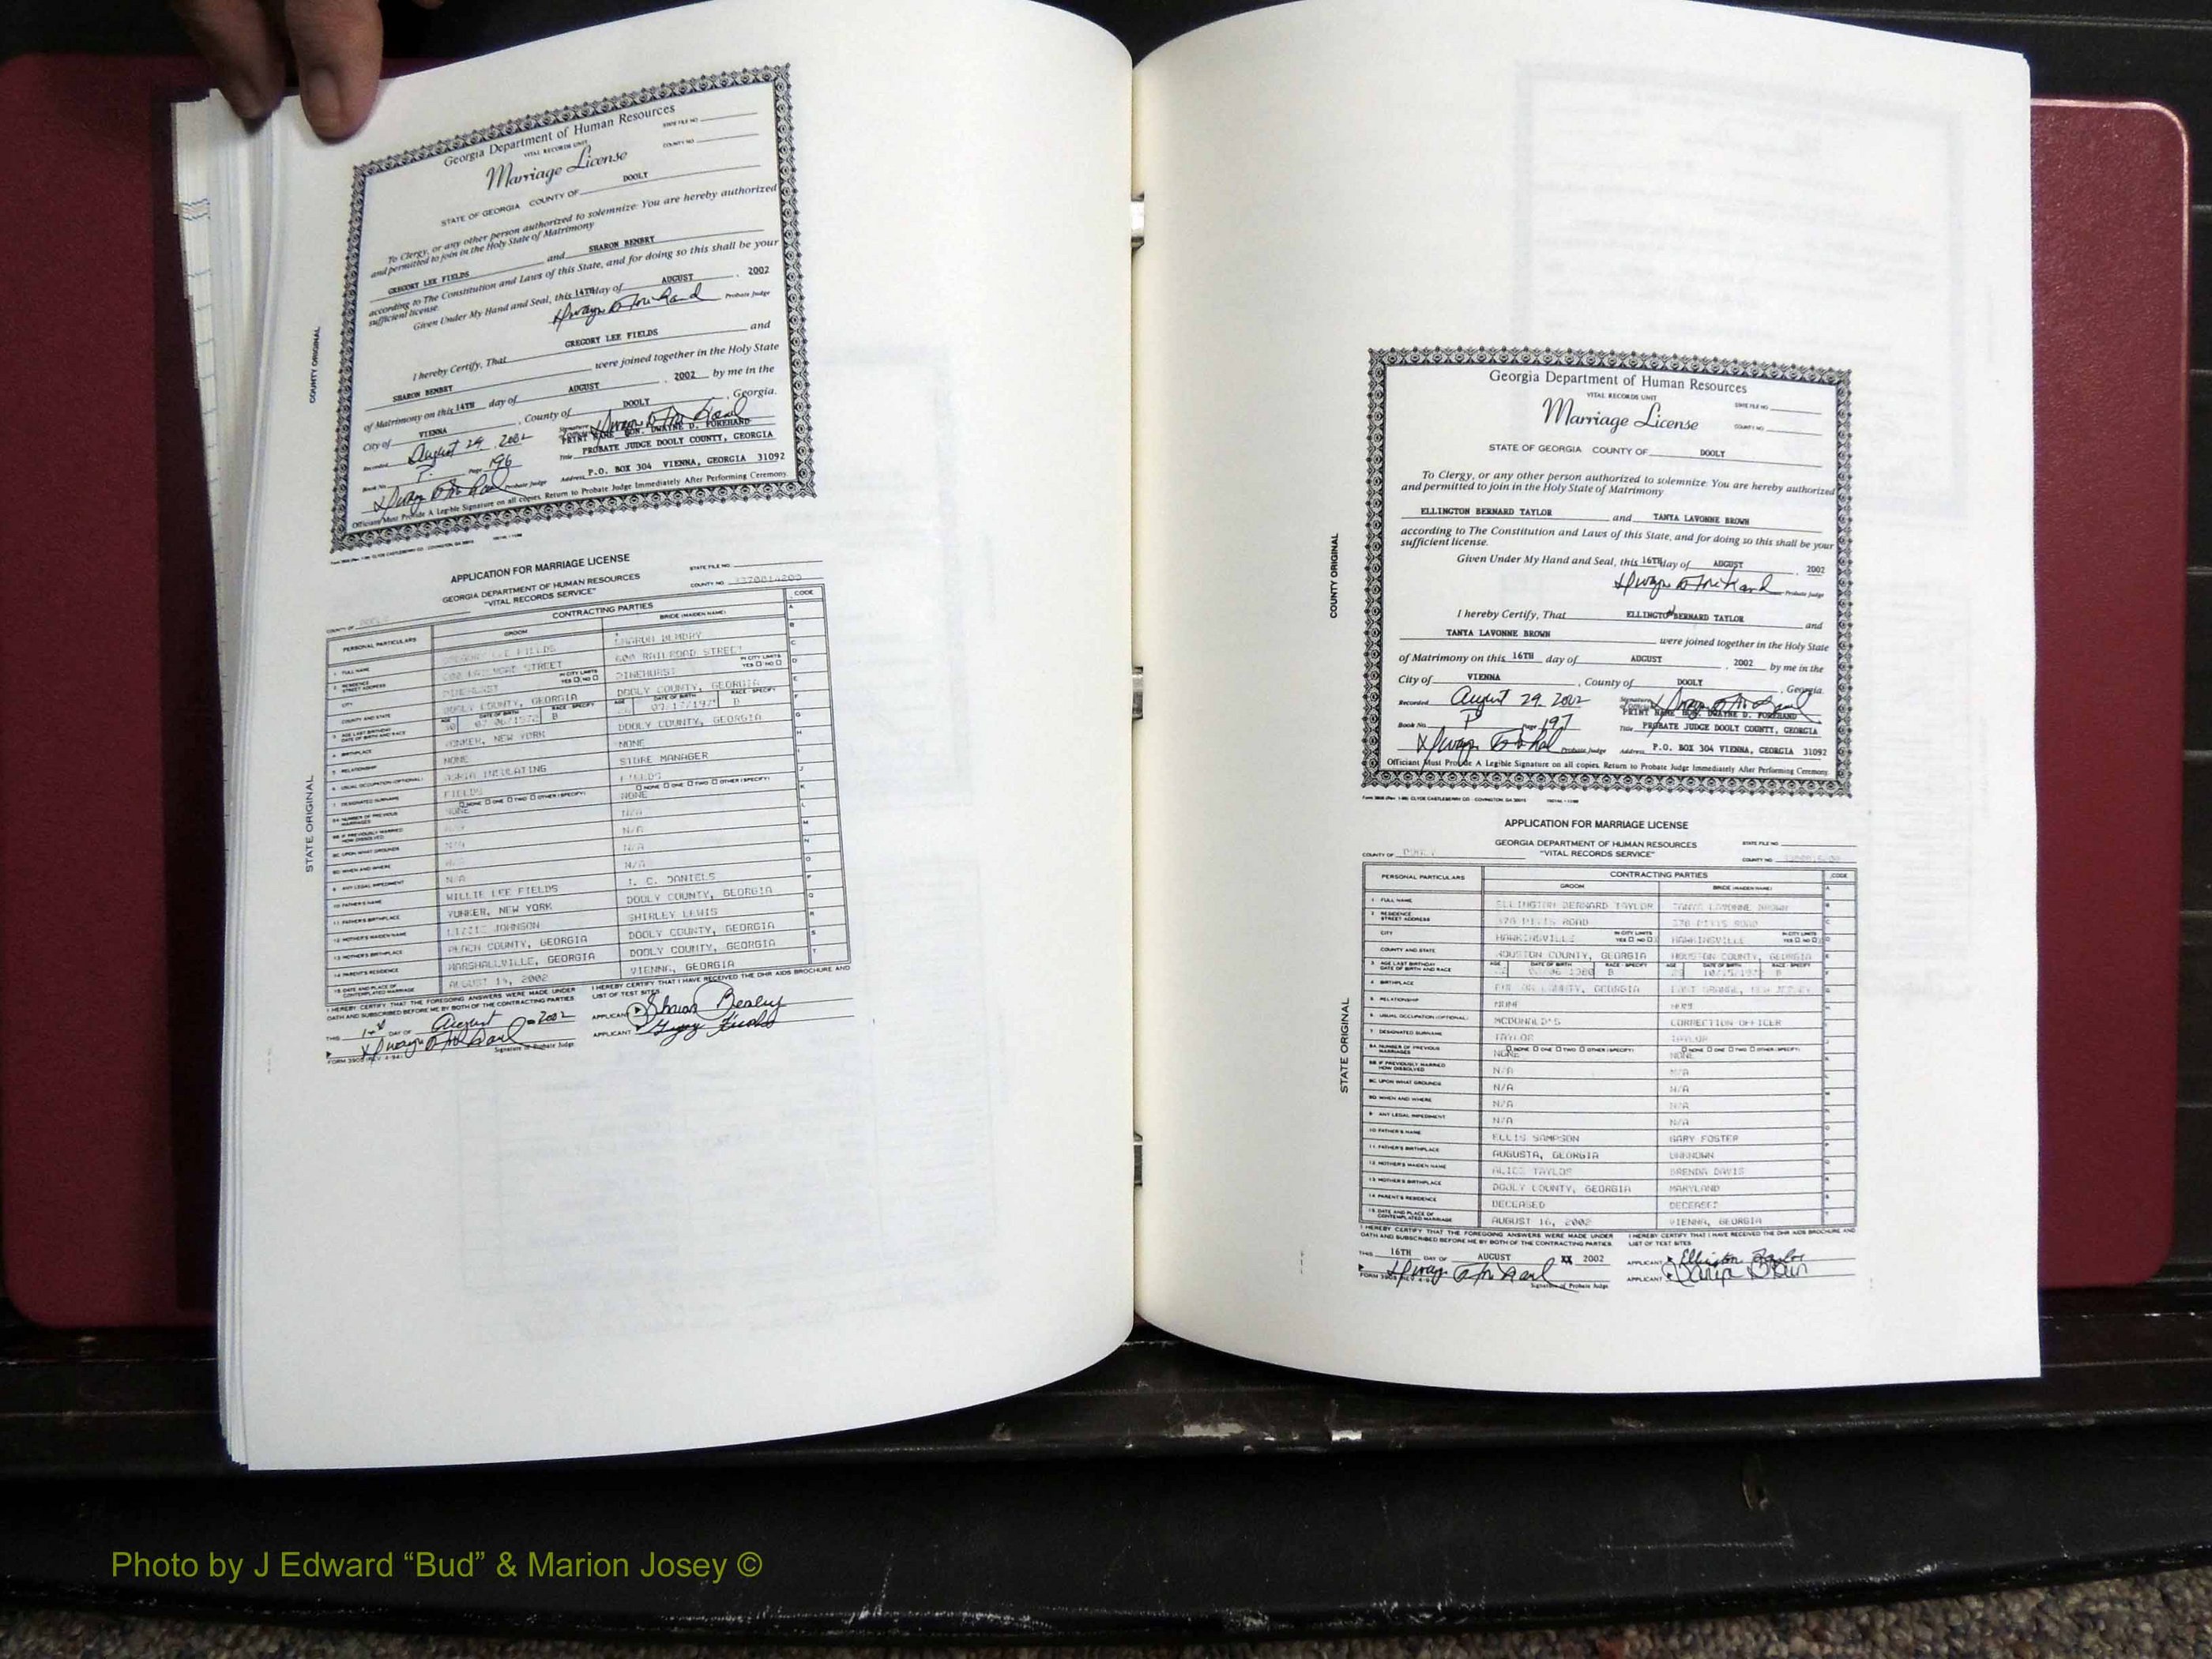 Georgia Department of Human Resources
VITAL RECORDS UNIT
STATE FILE NO.
Marriage License
COUNTY NO.
STATE OF GEORGIA COUNTY OF DOOLY
To Clergy, or any other person authorized to solemnize: You are hereby authorized
and permitted to join in the Holy State of Matrimony
GREGORY LEE FIELDS and SHARON BEMBRY
according to The Constitution and Laws of this State, and for doing so this shall be your
sufficient license.
Given Under My Hand and Seal, this 14TH day of AUGUST , 2002
Probate Judge
COUNTY ORIGINAL
I hereby Certify, That GREGORY LEE FIELDS and
SHARON BEMBRY were joined together in the Holy State
of Matrimony on this 14TH day of AUGUST , 2002 by me in the
City of VIENNA , County of DOOLY , Georgia.
Recorded August 29, 2002
PRINT NAME HON. DWAYNE D. FOREHAND
Book No. P Page 196 Title PROBATE JUDGE DOOLY COUNTY, GEORGIA
Probate Judge Address P.O. BOX 304 VIENNA, GEORGIA 31092
Officiant Must Provide A Legible Signature on all copies. Return to Probate Judge Immediately After Performing Ceremony.
APPLICATION FOR MARRIAGE LICENSE
GEORGIA DEPARTMENT OF HUMAN RESOURCES
"VITAL RECORDS SERVICE"
STATE FILE NO.
COUNTY NO.
COUNTY OF DOOLY
STATE ORIGINAL
PERSONAL PARTICULARS CONTRACTING PARTIES CODE
GROOM BRIDE (MAIDEN NAME)
1 FULL NAME GREGORY LEE FIELDS SHARON BEMBRY
2 RESIDENCE STREET ADDRESS STREET 600 RAILROAD STREET
CITY PINEHURST IN CITY LIMITS YES NO PINEHURST IN CITY LIMITS YES NO
COUNTY AND STATE DOOLY COUNTY, GEORGIA DOOLY COUNTY, GEORGIA
3 AGE LAST BIRTHDAY DATE OF BIRTH AND RACE B B
4 BIRTHPLACE YONKER, NEW YORK DOOLY COUNTY, GEORGIA
5 RELATIONSHIP NONE NONE
6 USUAL OCCUPATION (OPTIONAL) INSULATING STORE MANAGER
7 DESIGNATED SURNAME FIELDS FIELDS
8A NUMBER OF PREVIOUS MARRIAGES NONE ONE TWO OTHER (SPECIFY) NONE NONE ONE TWO OTHER (SPECIFY) NONE
8B IF PREVIOUSLY MARRIED HOW DISSOLVED N/A N/A
8C UPON WHAT GROUNDS N/A N/A
8D WHEN AND WHERE N/A N/A
9 ANY LEGAL IMPEDIMENT N/A N/A
10 FATHER'S NAME WILLIE LEE FIELDS I. C. DANIELS
11 FATHER'S BIRTHPLACE YONKER, NEW YORK DOOLY COUNTY, GEORGIA
12 MOTHER'S MAIDEN NAME LIZZIE JOHNSON SHIRLEY LEWIS
13 MOTHER'S BIRTHPLACE PEACH COUNTY, GEORGIA DOOLY COUNTY, GEORGIA
14 PARENT'S RESIDENCE MARSHALLVILLE, GEORGIA DOOLY COUNTY, GEORGIA
15 DATE AND PLACE OF CONTEMPLATED MARRIAGE AUGUST 14, 2002 VIENNA, GEORGIA
I HEREBY CERTIFY THAT THE FOREGOING ANSWERS WERE MADE UNDER OATH AND SUBSCRIBED BEFORE ME BY BOTH OF THE CONTRACTING PARTIES
I HEREBY CERTIFY THAT I HAVE RECEIVED THE DHR AIDS BROCHURE AND LIST OF TEST SITES.
THIS 14th DAY OF August 2002
APPLICANT Sharon Bembry
APPLICANT Gregory Fields
Signature of Probate Judge
FORM 3908 (REV. 4-94)
Georgia Department of Human Resources
VITAL RECORDS UNIT
STATE FILE NO.
Marriage License
COUNTY NO.
STATE OF GEORGIA COUNTY OF DOOLY
To Clergy, or any other person authorized to solemnize: You are hereby authorized
and permitted to join in the Holy State of Matrimony
ELLINGTON BERNARD TAYLOR and TANYA LAVONNE BROWN
according to The Constitution and Laws of this State, and for doing so this shall be your
sufficient license.
Given Under My Hand and Seal, this 16TH day of AUGUST , 2002
Probate Judge
COUNTY ORIGINAL
I hereby Certify, That ELLINGTON BERNARD TAYLOR and
TANYA LAVONNE BROWN were joined together in the Holy State
of Matrimony on this 16TH day of AUGUST , 2002 by me in the
City of VIENNA , County of DOOLY , Georgia.
Recorded August 29, 2002
PRINT NAME HON. DWAYNE D. FOREHAND
Book No. P Page 197 Title PROBATE JUDGE DOOLY COUNTY, GEORGIA
Probate Judge Address P.O. BOX 304 VIENNA, GEORGIA 31092
Officiant Must Provide A Legible Signature on all copies. Return to Probate Judge Immediately After Performing Ceremony.
APPLICATION FOR MARRIAGE LICENSE
GEORGIA DEPARTMENT OF HUMAN RESOURCES
"VITAL RECORDS SERVICE"
STATE FILE NO.
COUNTY NO.
COUNTY OF DOOLY
STATE ORIGINAL
PERSONAL PARTICULARS CONTRACTING PARTIES CODE
GROOM BRIDE (MAIDEN NAME)
1 FULL NAME ELLINGTON BERNARD TAYLOR TANYA LAVONNE BROWN
2 RESIDENCE STREET ADDRESS ROAD ROAD
CITY HAWKINSVILLE IN CITY LIMITS YES NO HAWKINSVILLE IN CITY LIMITS YES NO
COUNTY AND STATE HOUSTON COUNTY, GEORGIA HOUSTON COUNTY, GEORGIA
3 AGE LAST BIRTHDAY DATE OF BIRTH AND RACE B B
4 BIRTHPLACE COUNTY, GEORGIA EAST ORANGE, NEW JERSEY
5 RELATIONSHIP NONE NONE
6 USUAL OCCUPATION (OPTIONAL) MCDONALD'S CORRECTION OFFICER
7 DESIGNATED SURNAME TAYLOR TAYLOR
8A NUMBER OF PREVIOUS MARRIAGES NONE ONE TWO OTHER (SPECIFY) NONE NONE ONE TWO OTHER (SPECIFY) NONE
8B IF PREVIOUSLY MARRIED HOW DISSOLVED N/A N/A
8C UPON WHAT GROUNDS N/A N/A
8D WHEN AND WHERE N/A N/A
9 ANY LEGAL IMPEDIMENT N/A N/A
10 FATHER'S NAME ELLIS SAMPSON GARY FOSTER
11 FATHER'S BIRTHPLACE AUGUSTA, GEORGIA UNKNOWN
12 MOTHER'S MAIDEN NAME ALICE TAYLOR BRENDA DAVIS
13 MOTHER'S BIRTHPLACE DOOLY COUNTY, GEORGIA MARYLAND
14 PARENT'S RESIDENCE DECEASED DECEASED
15 DATE AND PLACE OF CONTEMPLATED MARRIAGE AUGUST 16, 2002 VIENNA, GEORGIA
I HEREBY CERTIFY THAT THE FOREGOING ANSWERS WERE MADE UNDER OATH AND SUBSCRIBED BEFORE ME BY BOTH OF THE CONTRACTING PARTIES
I HEREBY CERTIFY THAT I HAVE RECEIVED THE DHR AIDS BROCHURE AND LIST OF TEST SITES.
THIS 16TH DAY OF AUGUST XX 2002
APPLICANT Ellington Taylor
APPLICANT Tanya Brown
Signature of Probate Judge
FORM 3908 (REV. 4-94)
Photo by J Edward “Bud” & Marion Josey ©